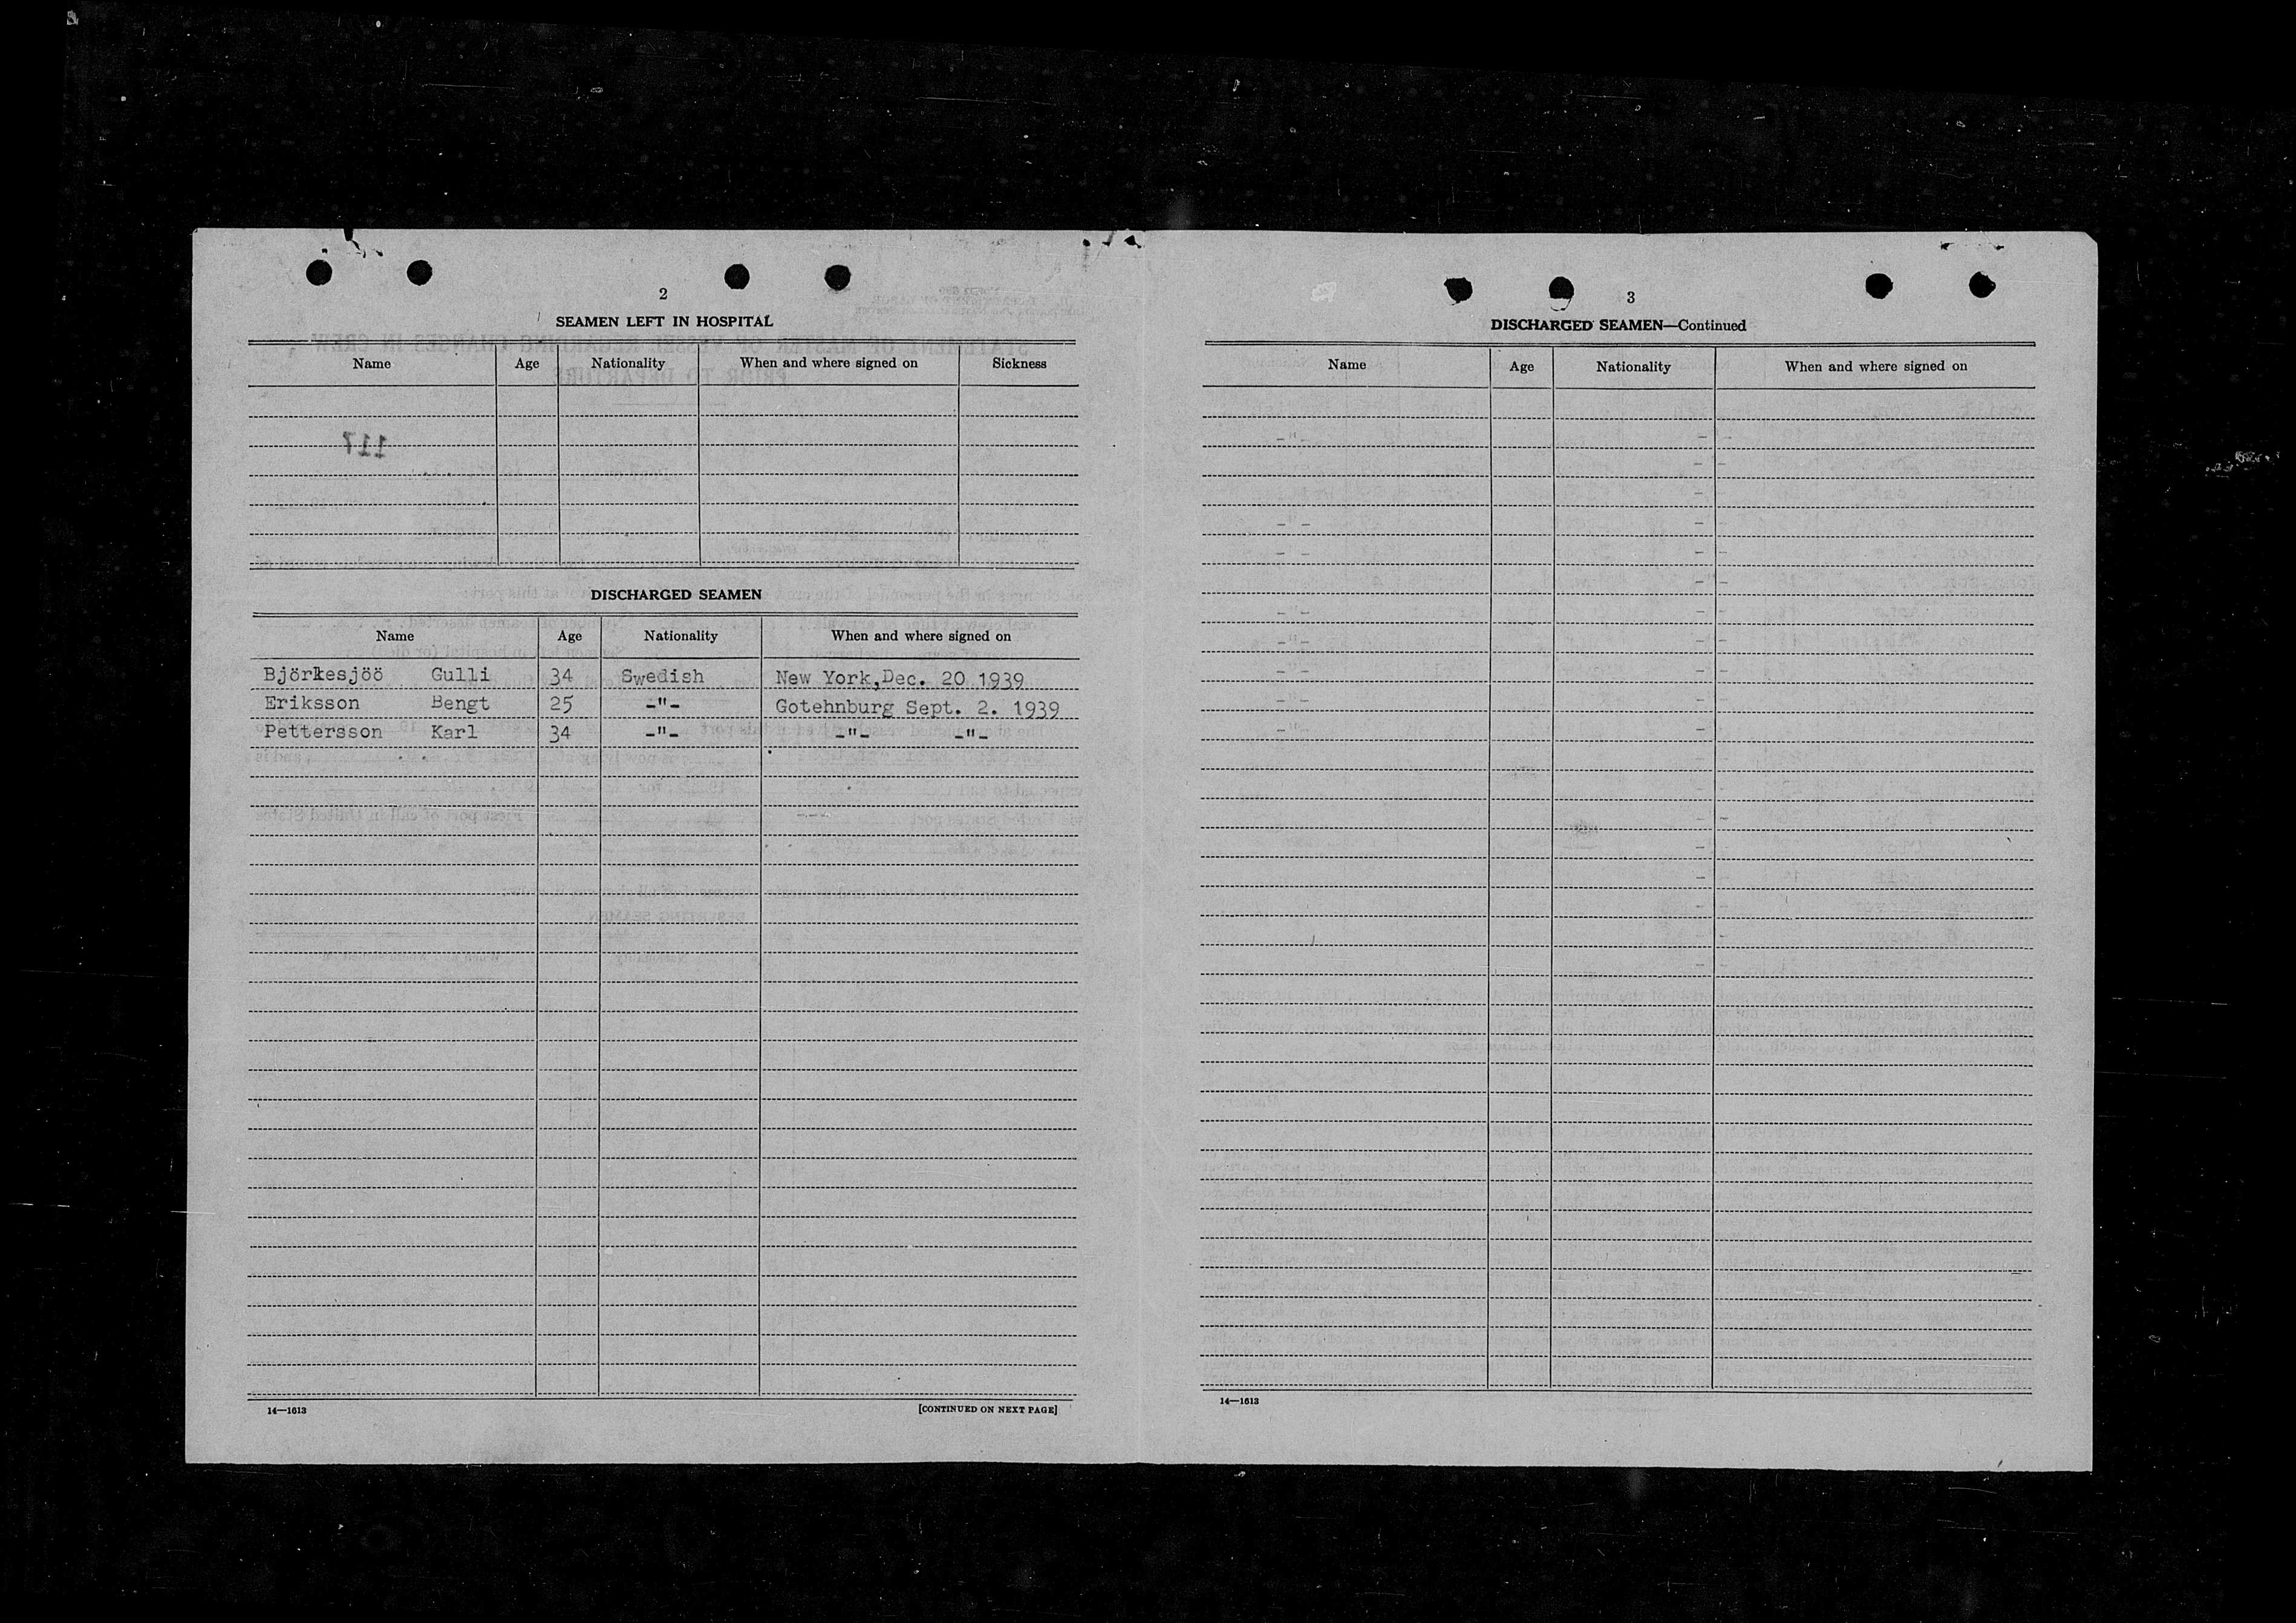 2
SEAMEN LEFT IN HOSPITAL
Name Age Nationality When and where signed on Sickness
117
DISCHARGED SEAMEN
Name Age Nationality When and where signed on
Björkesjöö Gulli 34 Swedish New York,Dec. 20 1939
Eriksson Bengt 25 -"- Gotehnburg Sept. 2. 1939
Pettersson Karl 34 -"- -"- -"-
14—1613 [CONTINUED ON NEXT PAGE]
3
DISCHARGED SEAMEN—Continued
Name Age Nationality When and where signed on
14—1613